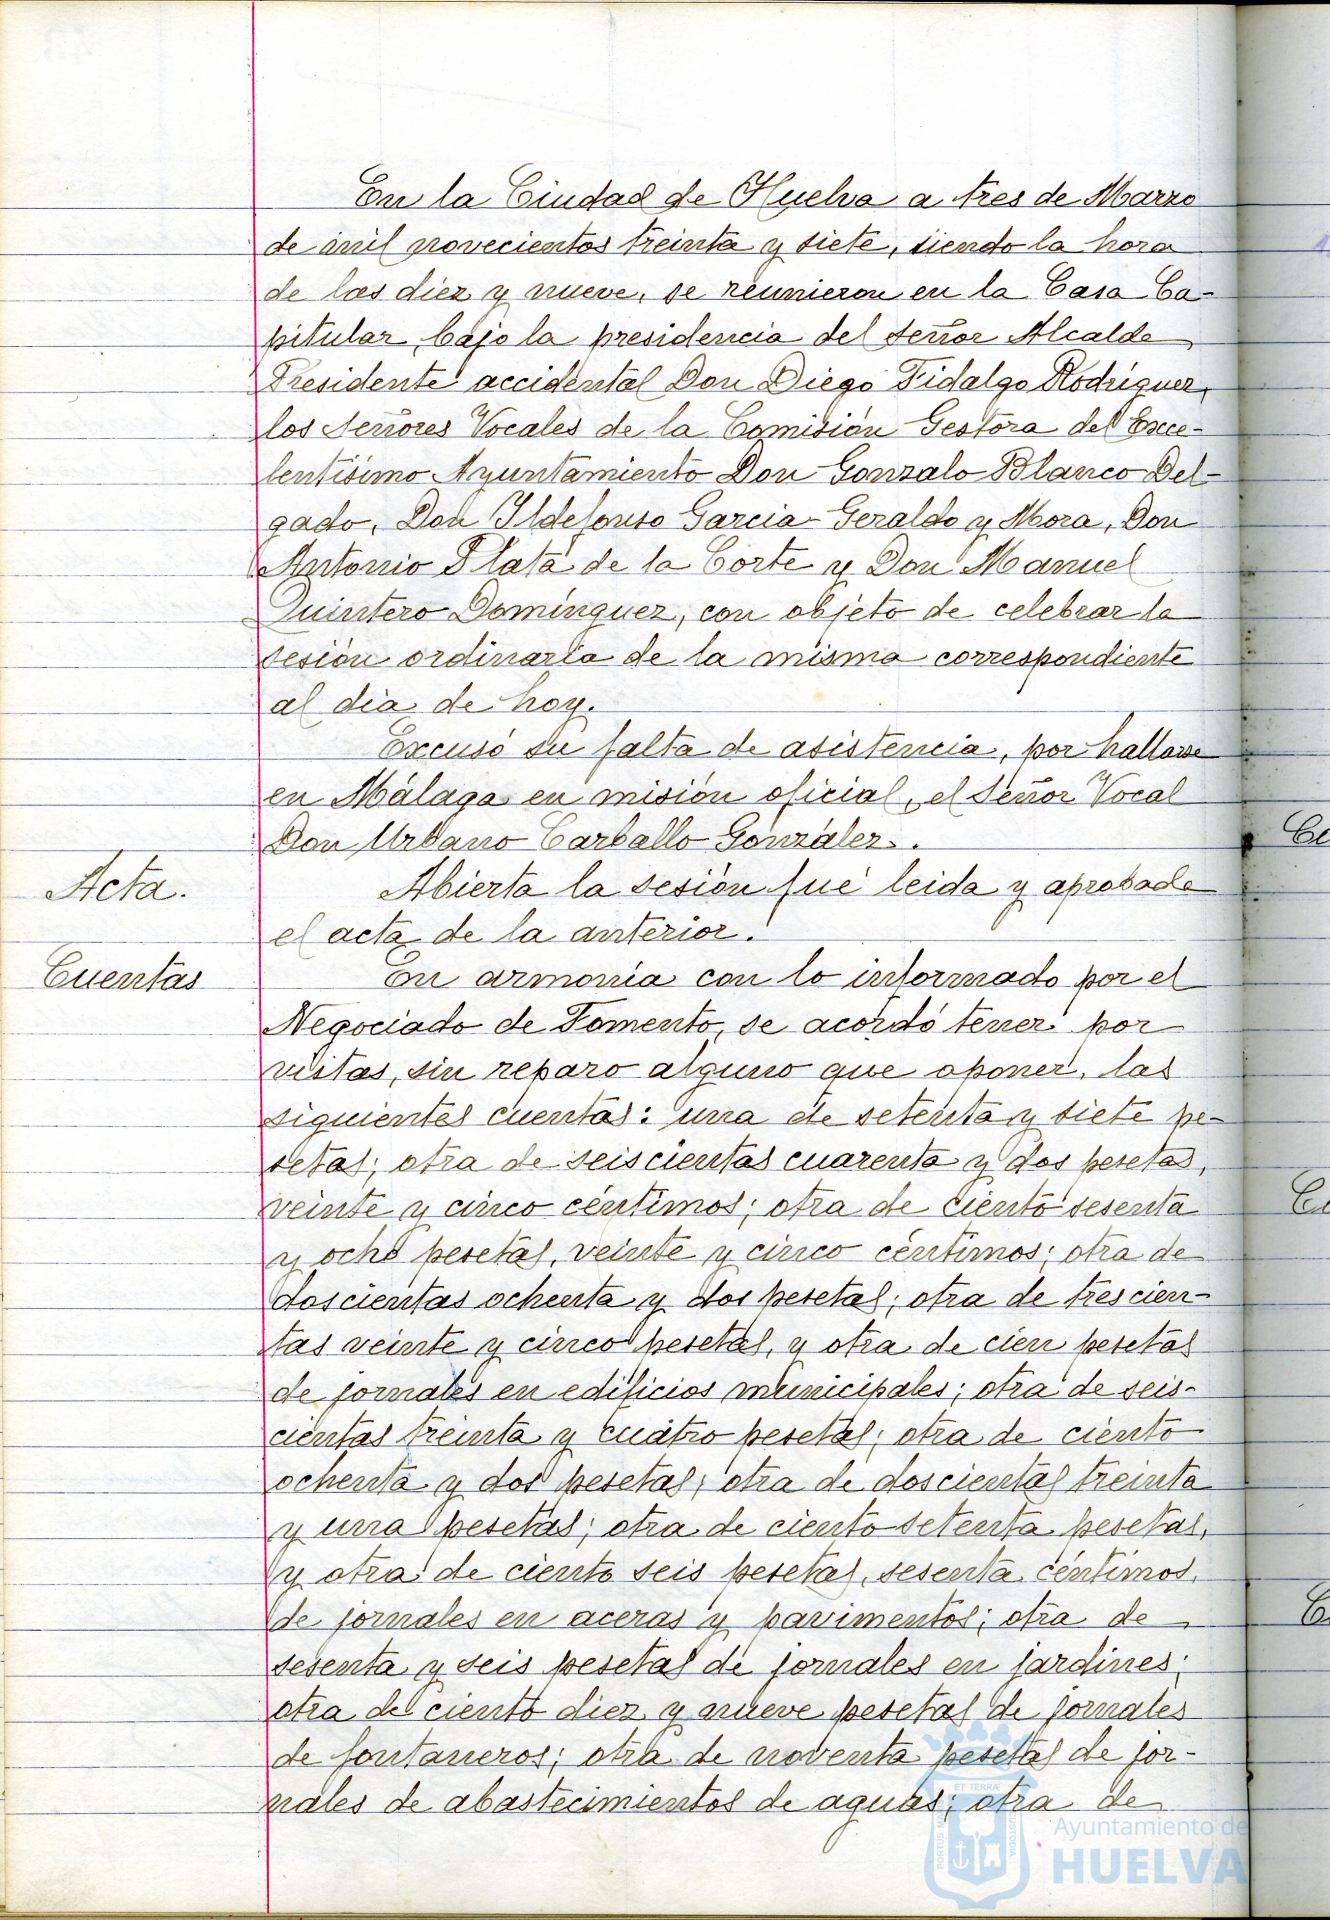 En la Ciudad de Huelva a tres de Marzo
de mil novecientos treinta y siete, siendo la hora
de las diez y nueve, se reunieron en la Casa Ca-
pitular, bajo la presidencia del señor Alcalde
Presidente accidental Don Diego Fidalgo Rodríguez,
los señores Vocales de la Comisión Gestora del Exce-
lentísimo Ayuntamiento Don Gonzalo Blanco Del-
gado, Don Ildefonso Garcia-Geraldo y Mora, Don
Antonio Plata de la Corte y Don Manuel
Quintero Domínguez, con objeto de celebrar la
sesión ordinaria de la misma correspondiente
al dia de hoy.
Excusó su falta de asistencia, por hallarse
en Málaga en misión oficial, el Señor Vocal
Don Urbano Carballo González.
Acta.
Abierta la sesión fué leida y aprobada
el acta de la anterior.
Cuentas
En armonía con lo informado por el
Negociado de Fomento, se acordó tener por
vistas, sin reparo alguno que oponer, las
siguientes cuentas: una de setenta y siete pe-
setas; otra de seiscientas cuarenta y dos pesetas,
veinte y cinco céntimos; otra de ciento sesenta
y ocho pesetas, veinte y cinco céntimos; otra de
doscientas ochenta y dos pesetas; otra de trescien-
tas veinte y cinco pesetas, y otra de cien pesetas
de jornales en edificios municipales; otra de seis-
cientas treinta y cuatro pesetas; otra de ciento
ochenta y dos pesetas; otra de doscientas treinta
y una pesetas; otra de ciento setenta pesetas,
y otra de ciento seis pesetas, sesenta céntimos,
de jornales en aceras y pavimentos; otra de
sesenta y seis pesetas de jornales en jardines;
otra de ciento diez y nueve pesetas de jornales
de fontaneros; otra de noventa pesetas de jor-
nales de abastecimientos de aguas; otra de
ET TERRA
CUSTODIA
Ayuntamiento de
HUELVA